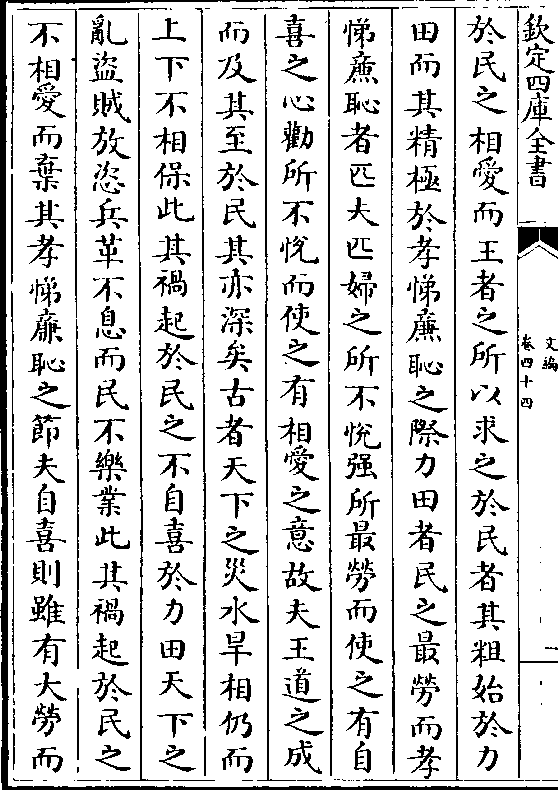 欽定四庫全書
文編
卷四十四
一
於民之相愛而王者之所以求之於民者其粗始於力
田而其精極於孝悌廉恥之際力田者民之最勞而孝
悌廉恥者匹夫匹婦之所不悅强所最勞而使之有自
喜之心勸所不悅而使之有相愛之意故夫王道之成
而及其至於民其亦深矣古者天下之災水旱相仍而
上下不相保此其禍起於民之不自喜於力田天下之
亂盜賊放恣兵革不息而民不樂業此其禍起於民之
不相愛而棄其孝悌廉恥之節夫自喜則雖有大勞而